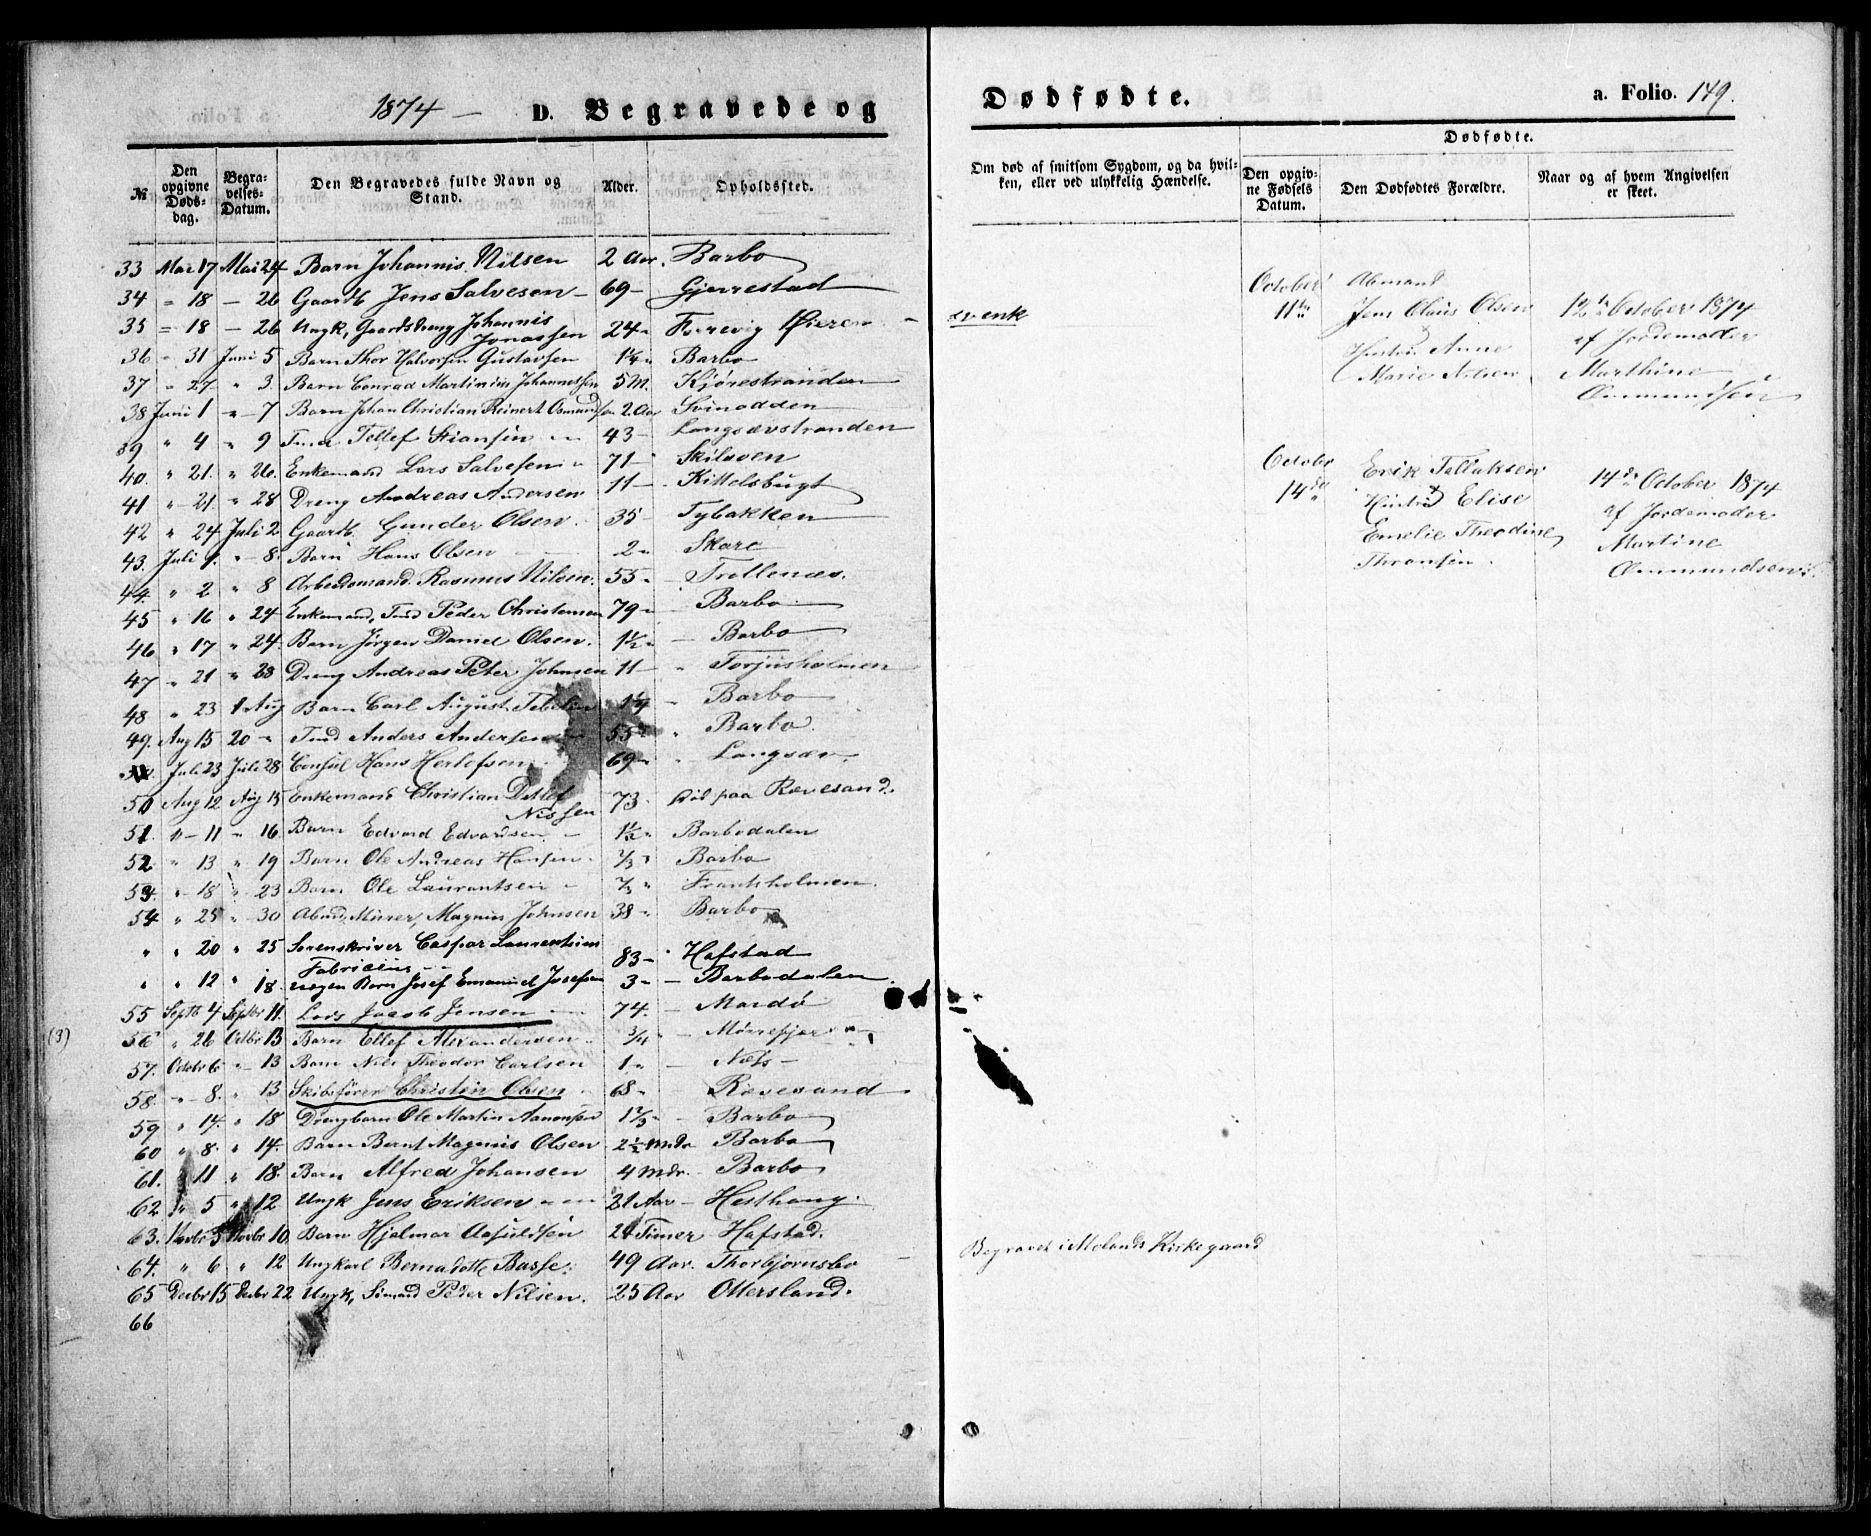 1874 — D. Begravede og
Dødfødte.
a. Folio. 149.
№
Den opgivne Døds-dag.
Begra-velses-Datum.
Den Begravedes fulde Navn og Stand.
Alder.
Opholdssted.
Om død af smitsom Sygdom, og da hvil-ken, eller ved ulykkelig Hændelse.
Dødfødte.
Den opgiv-ne Fødsels Datum.
Den Dødfødtes Forældre.
Naar og af hvem Angivelsen er skeet.
33 Mai 17 Mai 24 Barn Johannis Nilsen 2 Aar. Barbo
34 " 18 — 26 Gaardb Jens Salvesen — 69 — Gjerrestad
35 = 18 — 26 Ungk, Gaardsdreng Johannis Jonassen 24 "
36 " 31 Juni 5 Barn Thor Halvorsen Gustavsen 1¼ " Barbo
37 " 27 " 3 Barn Conrad Martinius Johannessen 5 M. Kjørestranden
38 Juni 1 " 7 Barn Johan Christian Reinert Osmundsen 2 Aar Svinodden
39 " 4 " 9 Tellef Stiansen 43 — Langsævstranden
40. " 21. " 26. Enkemand Lars Salvesen " 71 — Skilsøen
41 " 21 " 28 Dreng Andreas Andersen 11 — Kittelsbugt
42 " 24 Juli 2 Gaardb Gunder Olsen. 35 — Tybakken
43. Juli " 8. Barn Hans Olsen 2 " Skare
44. " 2 " 8 Arbeidsmand Rasmus Nilsen. 55 " Trollenæs.
45 " 16 " 24 Enkemand, Tmd Peder Christensen 79 " Barbo
46 " 17 " 24. Barn Jørgen Daniel Olsen. 1½ " — Barbo
47 " 21 " 28 Dreng Andreas Peter Johnsen 11 — " Torjusholmen
48 " 23 1 Aug Barn Carl August 1¼ — Barbo
49. Aug 15 20 " Tmd Anders Andersen 55 " " Barbo.
Juli 23 Juli 28 Consul Hans Herlofsen 69 " " Langsæv.
50 Aug 12 Aug 15 Enkemand Christian Detlef Nissen 73. paa Rævesand.
51. " — 11 — 16 Barn Edvard Edvardsen — 1½ " Barbodalen
52 " 13 " 19 Barn Ole Andreas Hansen. Barbo
53. " 18 " 23 Barn Ole Laurantsen — Franksholmen.
54 " 25 " 30 Murer, Magnus Johnsen 38 " Barbo
" " 20 " 25 Sorenskriver Caspar Laurentius Fabricius 83 — " Hafstad
" " 12 " 18. Barn Josef Emanuel Josefsen 3 — — Barbodalen
55 Septb 4 Septbr 11. Lars Jacob Jensen 74. — Mardø
(3) 56 " 26 Octbr 13 Barn Ellef Alexandersen ¾ —
57. Octobr 6 — 13 Barn Nils Theodor Carlsen 1 " — Næs —
58. " 8. " 13 Skibsfører Christen Olsen 68 " Rævesand
59 " 14. " 18 Drengbarn Ole Martin Aanonsen — Barbo
60 " 8. " 14. Barn Bernt Magnus Olsen 2½ Mdr Barbo
61. 11 " 18. Barn Alfred Johansen 4 Mdr. — Barbo
62 " 5 " 12 Ungk Jens Eriksen 21 Aar — Hesthaug.
63. Novbr 5 Novbr 10. Barn Hjalmar 24 Timer Hafstad.
64. " 6 " 12 Ungkarl Bernadotte Basse. 49 Aar. Thorbjørnsbo
Begravet i Molands Kirkegaard
65 Decbr 15 Decbr 22 Ungk, Sømand Peder Nilsen. 25 Aar Ottersland.
66
October 11te
Jens Claus Olsen
Hustru Anne Marie
12te October 1874 af Jordemoder Marthine
October 14de
Erik Tellaksen
Hustru Elise Emelie Theodine
14de October 1874 af Jordemoder Martine Ommundsen.